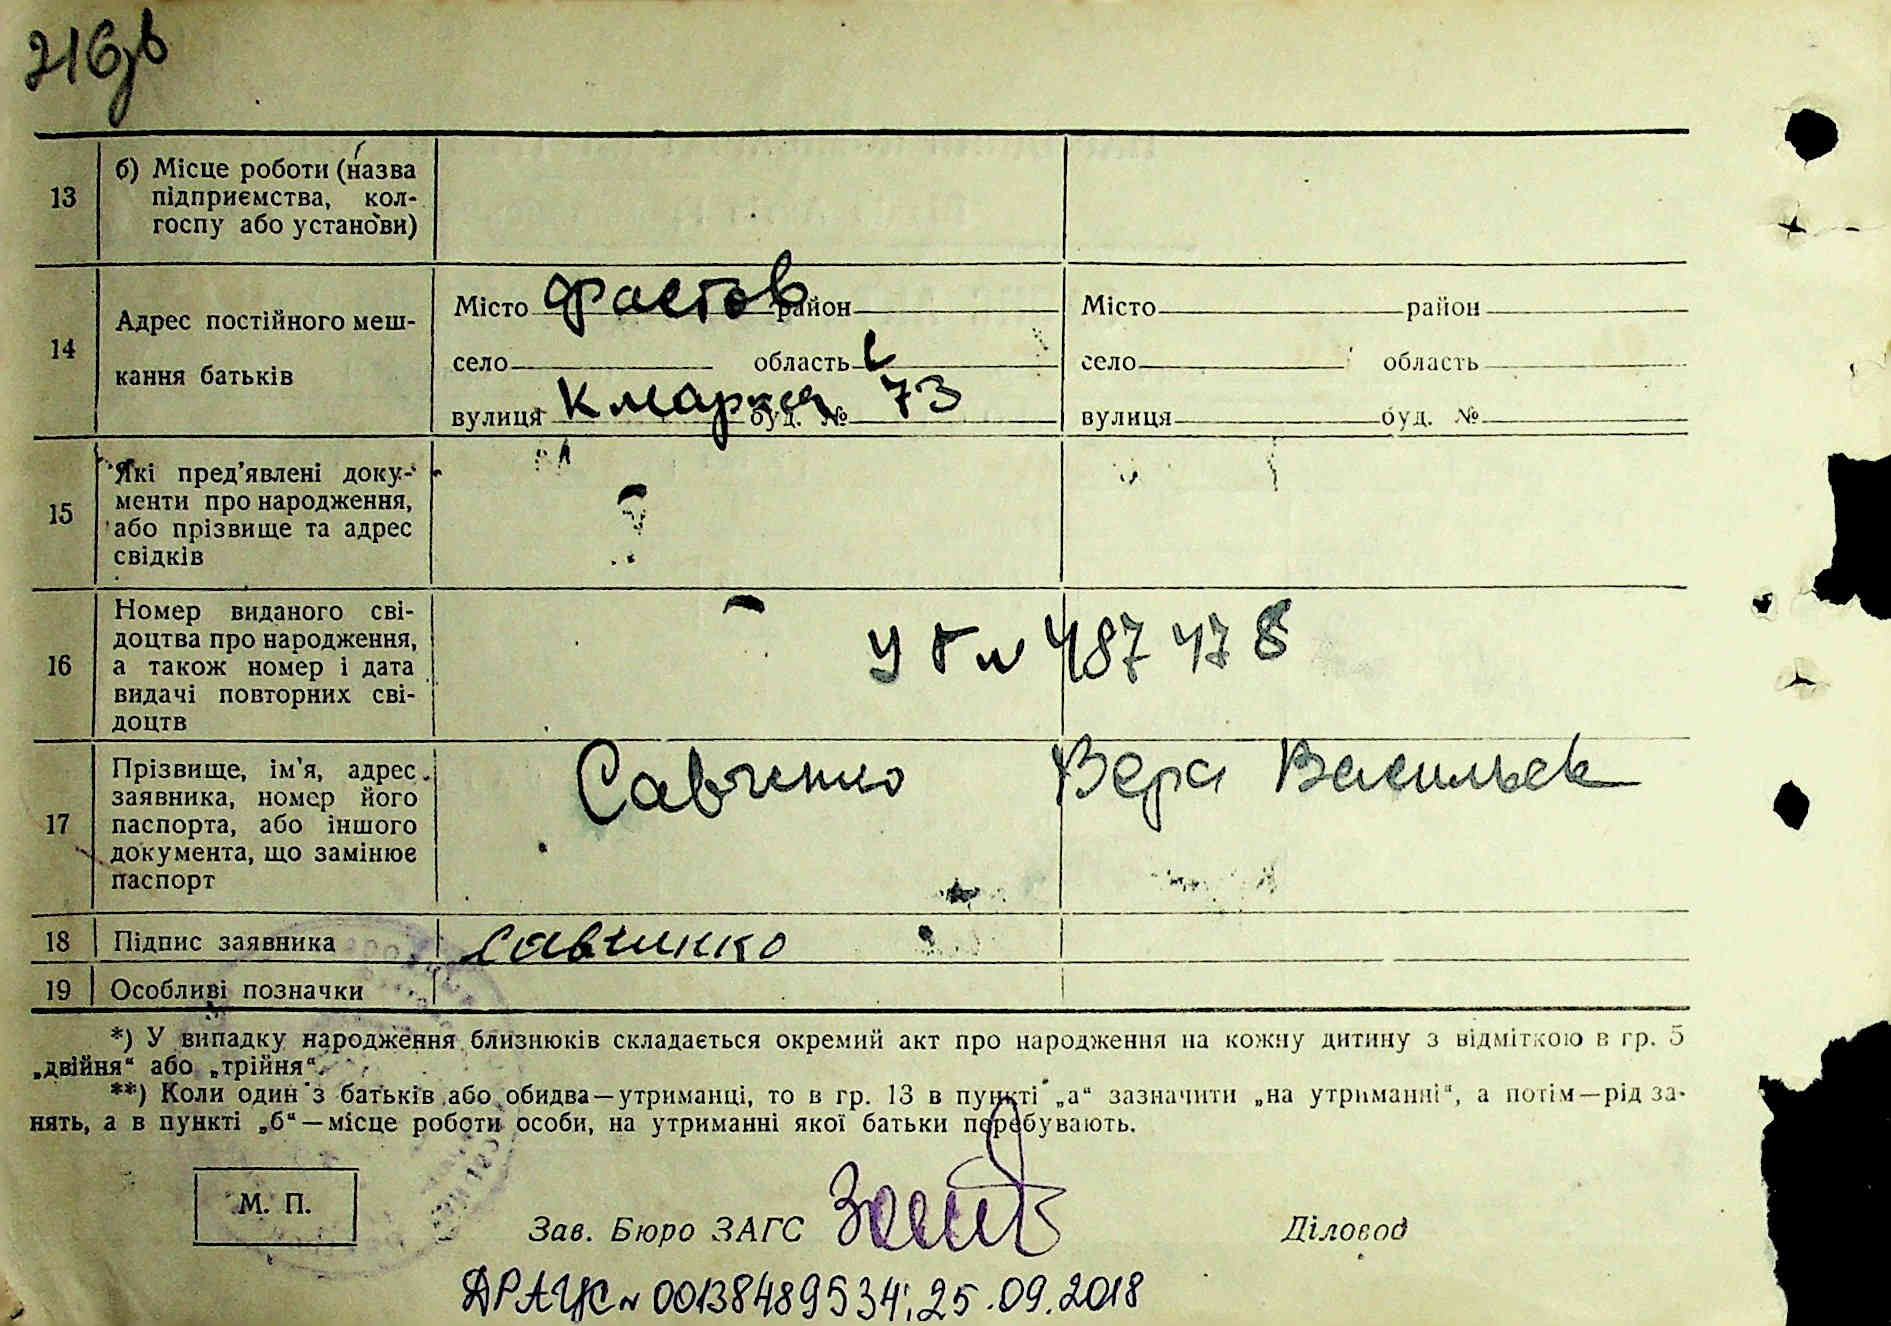 216зв
13
б) Місце роботи (назва
підприємства, кол-
госпу або установи)
14
Адрес постійного меш-
кання батьків
Місто Фастов район
село область
вулиця К Маркса буд. № 73
Місто район
село область
вулиця буд. №
15
Які пред'явлені доку-
менти про народження,
або прізвище та адрес
свідків
16
Номер виданого сві-
доцтва про народження,
а також номер і дата
видачі повторних сві-
доцтв
№ 487478
17
Прізвище, ім'я, адрес
заявника, номер його
паспорта, або іншого
документа, що замінює
паспорт
Савченко Вера Васильев
18 Підпис заявника
Савчинко
19 Особливі позначки
*) У випадку народження близнюків складається окремий акт про народження на кожну дитину з відміткою в гр. 5
„двійня“ або „трійня“.
**) Коли один з батьків або обидва—утриманці, то в гр. 13 в пункті „а“ зазначити „на утриманні“, а потім—рід за-
нять, а в пункті „б“—місце роботи особи, на утриманні якої батьки перебувають.
М. П.
Зав. Бюро ЗАГС
Діловод
ДРАЦС № 00138489534; 25.09.2018